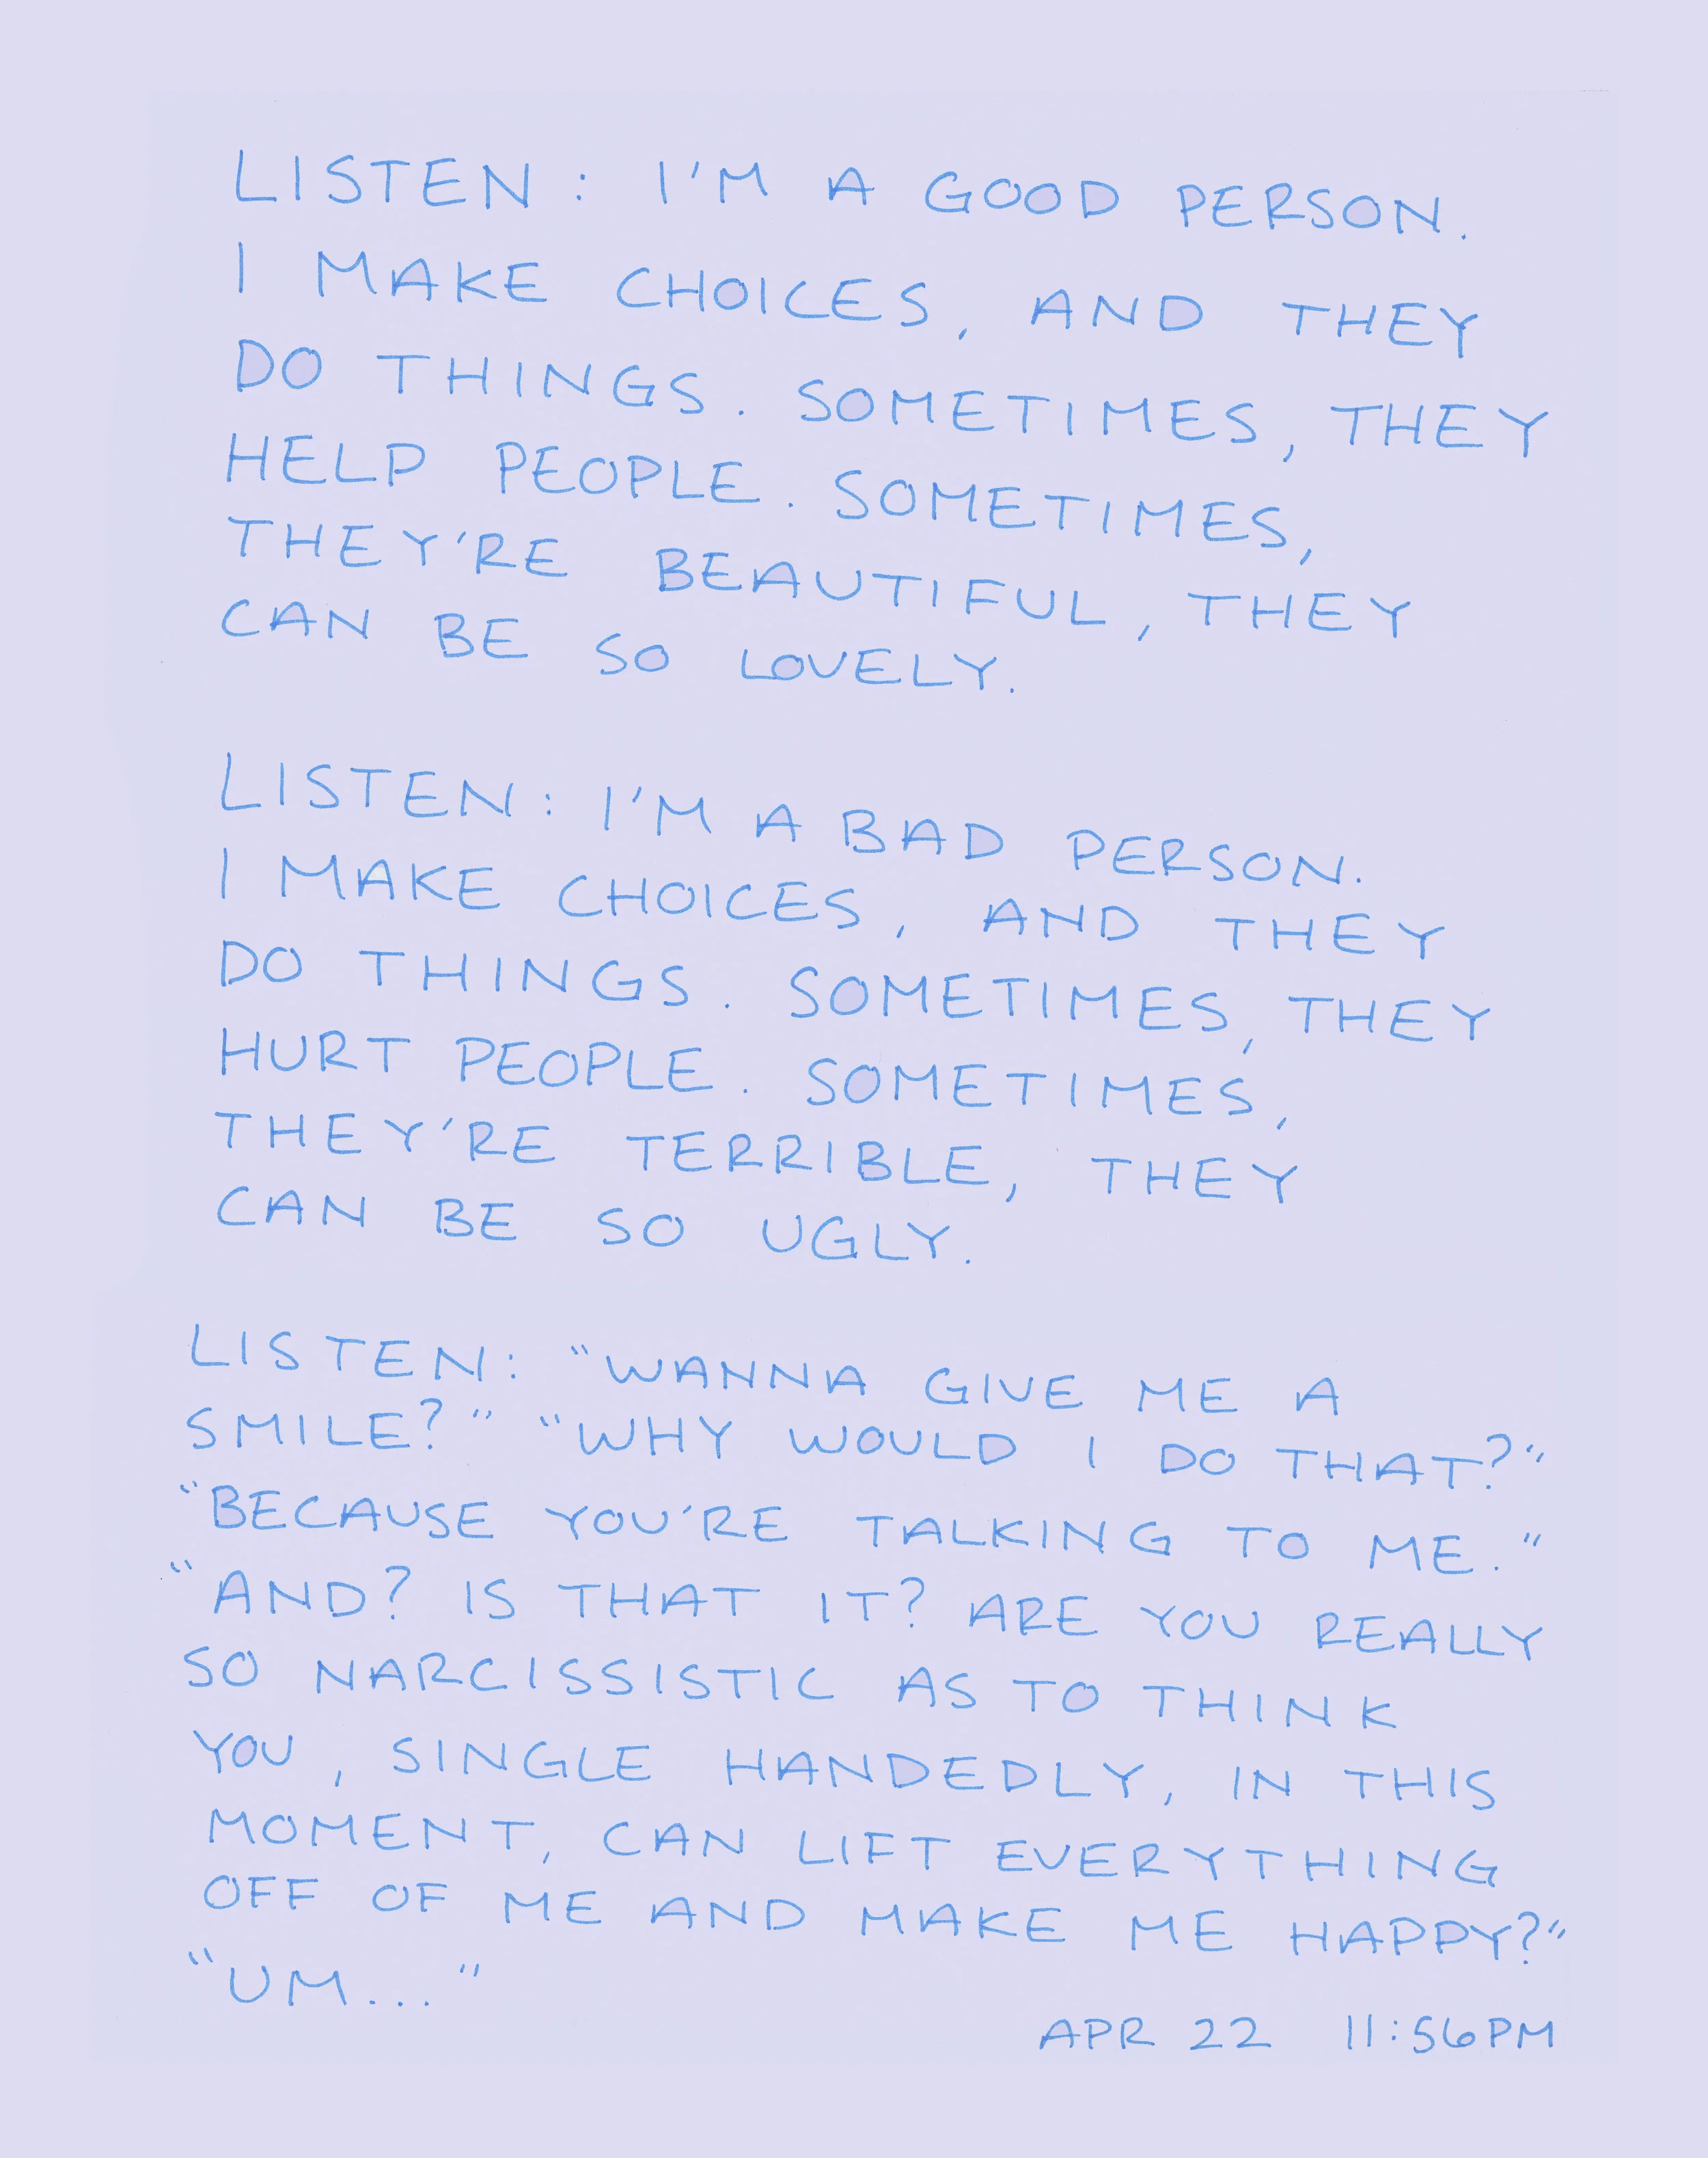 LISTEN: I'M A GOOD PERSON.
I MAKE CHOICES, AND THEY
DO THINGS. SOMETIMES, THEY
HELP PEOPLE. SOMETIMES,
THEY'RE BEAUTIFUL, THEY
CAN BE SO LOVELY.
LISTEN: I'M A BAD PERSON.
I MAKE CHOICES, AND THEY
DO THINGS. SOMETIMES, THEY
HURT PEOPLE. SOMETIMES,
THEY'RE TERRIBLE, THEY
CAN BE SO UGLY.
LISTEN: "WANNA GIVE ME A
SMILE?" "WHY WOULD I DO THAT?"
"BECAUSE YOU'RE TALKING TO ME."
"AND? IS THAT IT? ARE YOU REALLY
SO NARCISSISTIC AS TO THINK
YOU, SINGLE HANDEDLY, IN THIS
MOMENT, CAN LIFT EVERYTHING
OFF OF ME AND MAKE ME HAPPY?"
"UM..."
APR 22 11:56PM